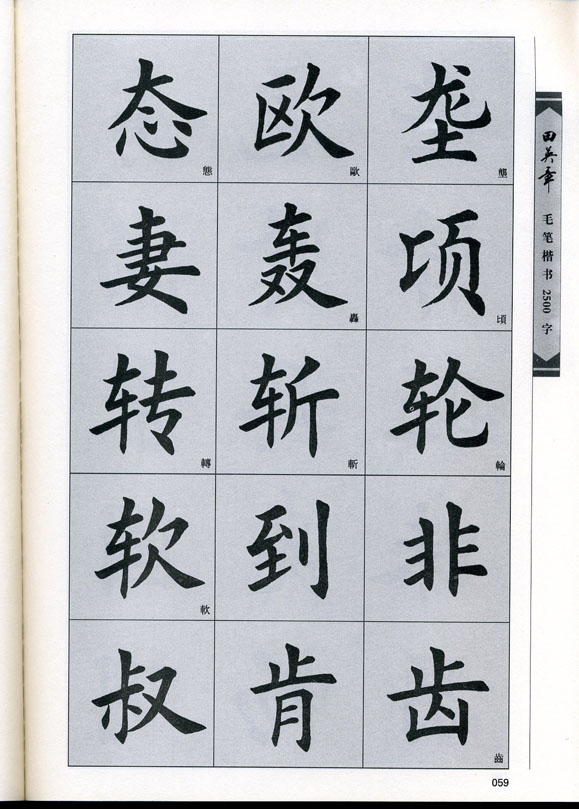 态 態 欧 歐 垄 壟
妻 轰 轟 顷 頃
转 轉 斩 斬 轮 輪
软 軟 到 非
叔 肯 齿 齒
田英章
毛笔楷书2500字
059